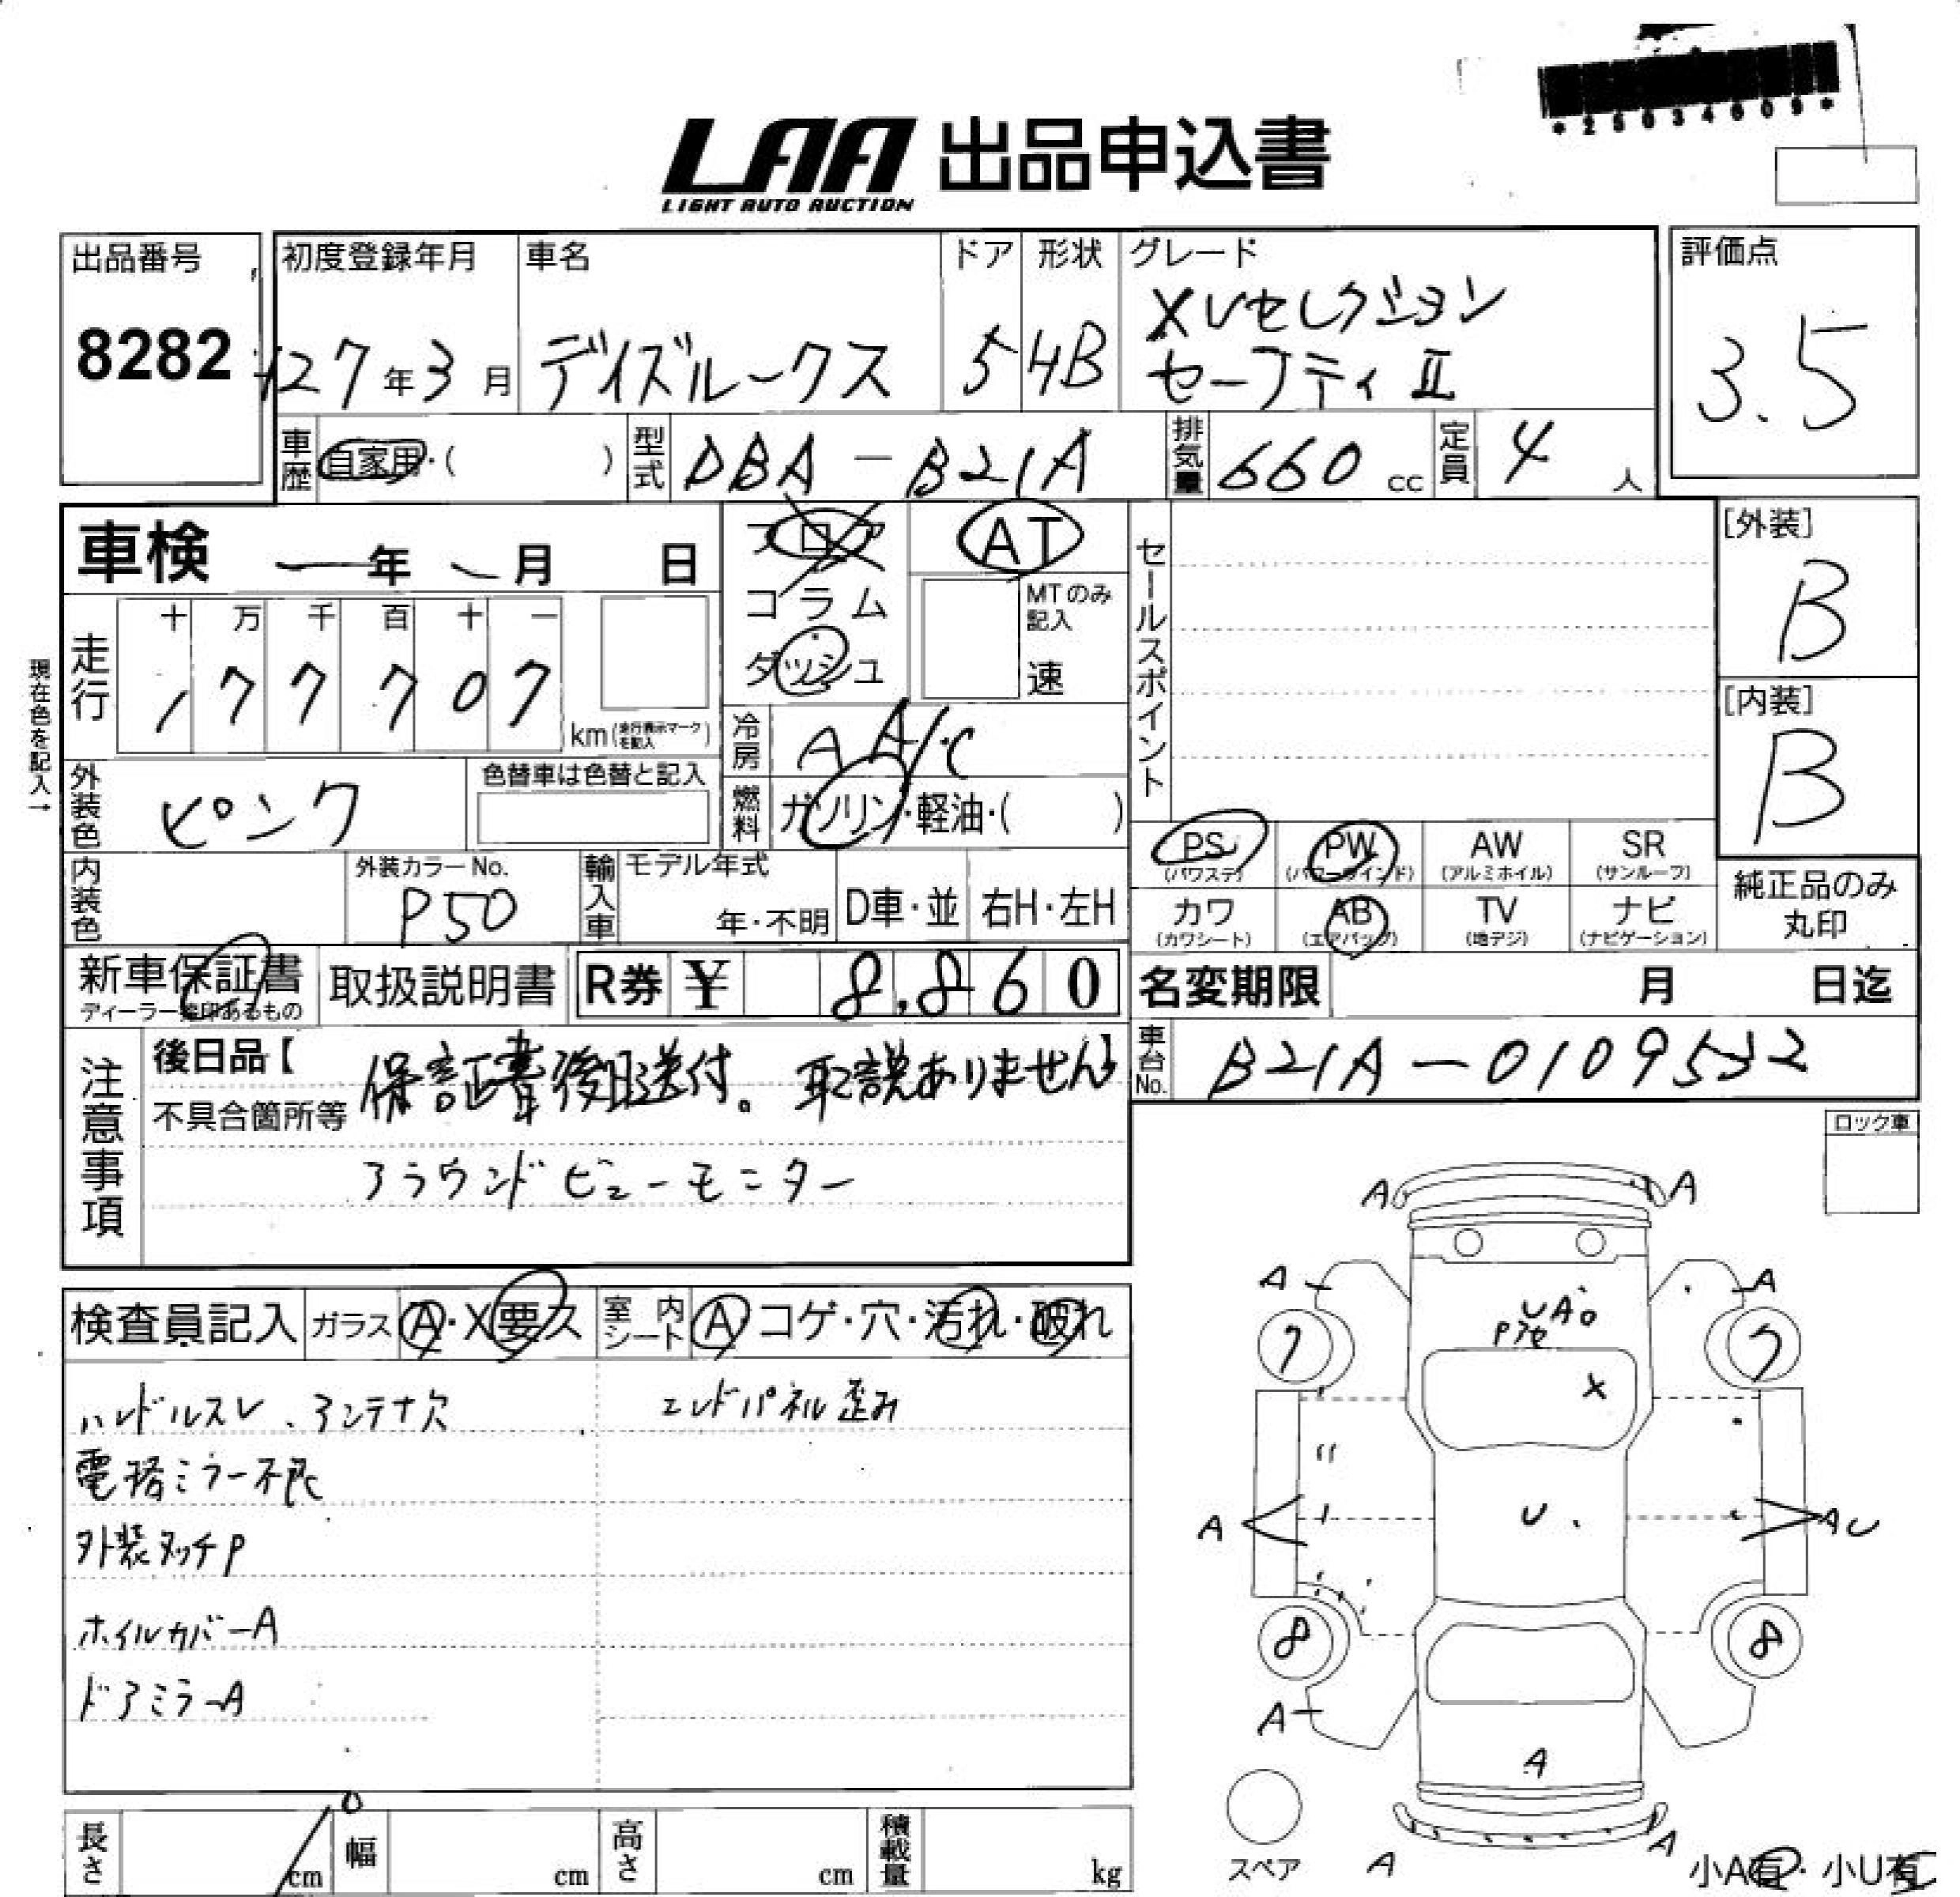 *25034609*
LAA 出品申込書
LIGHT AUTO AUCTION
出品番号
8282
初度登録年月
H27年3月
車名
デイズルークス
ドア
5
形状
HB
グレード
XVセレクション
セーフティⅡ
評価点
3.5
車歴
自家用・( )
型式
DBA-B21A
排気量
660cc
定員
4人
車検 年 月 日
フロア
コラム
ダッシュ
AT
MTのみ
記入
速
セールスポイント
[外装]
B
[内装]
B
走行
十 万 千 百 十 一
1 7 7 7 0 7
km(走行表示マークを記入)
現在色を記入→
冷房
AA/C
外装色
ピンク
色替車は色替と記入
燃料
ガソリン・軽油・( )
内装色
外装カラーNo.
P50
輸入車
モデル年式
年・不明
D車・並
右H・左H
PS
(パワステ)
PW
(パワーウインド)
AW
(アルミホイル)
SR
(サンルーフ)
カワ
(カワシート)
AB
(エアバッグ)
TV
(地デジ)
ナビ
(ナビゲーション)
純正品のみ
丸印
新車保証書
ディーラー捺印あるもの
取扱説明書
R券 ¥ 8,860
名変期限 月 日迄
注意事項
後日品【保証書後日送付。取説ありません】
不具合箇所等
アラウンドビューモニター
車台No.
B21A-0109532
ロック車
検査員記入
ガラス A・X要ス
室内シート A コゲ・穴・汚れ・破れ
ハンドルスレ、アンテナ欠
エンドパネル歪み
電格ミラー不良
外装タッチP
ホイルカバーA
ドアミラーA
A A
A A
UA
P
7 7
X
A U AU
8 8
A
A
A A
スペア
小A有・小U有
長さ cm
幅 cm
高さ cm
積載量 kg